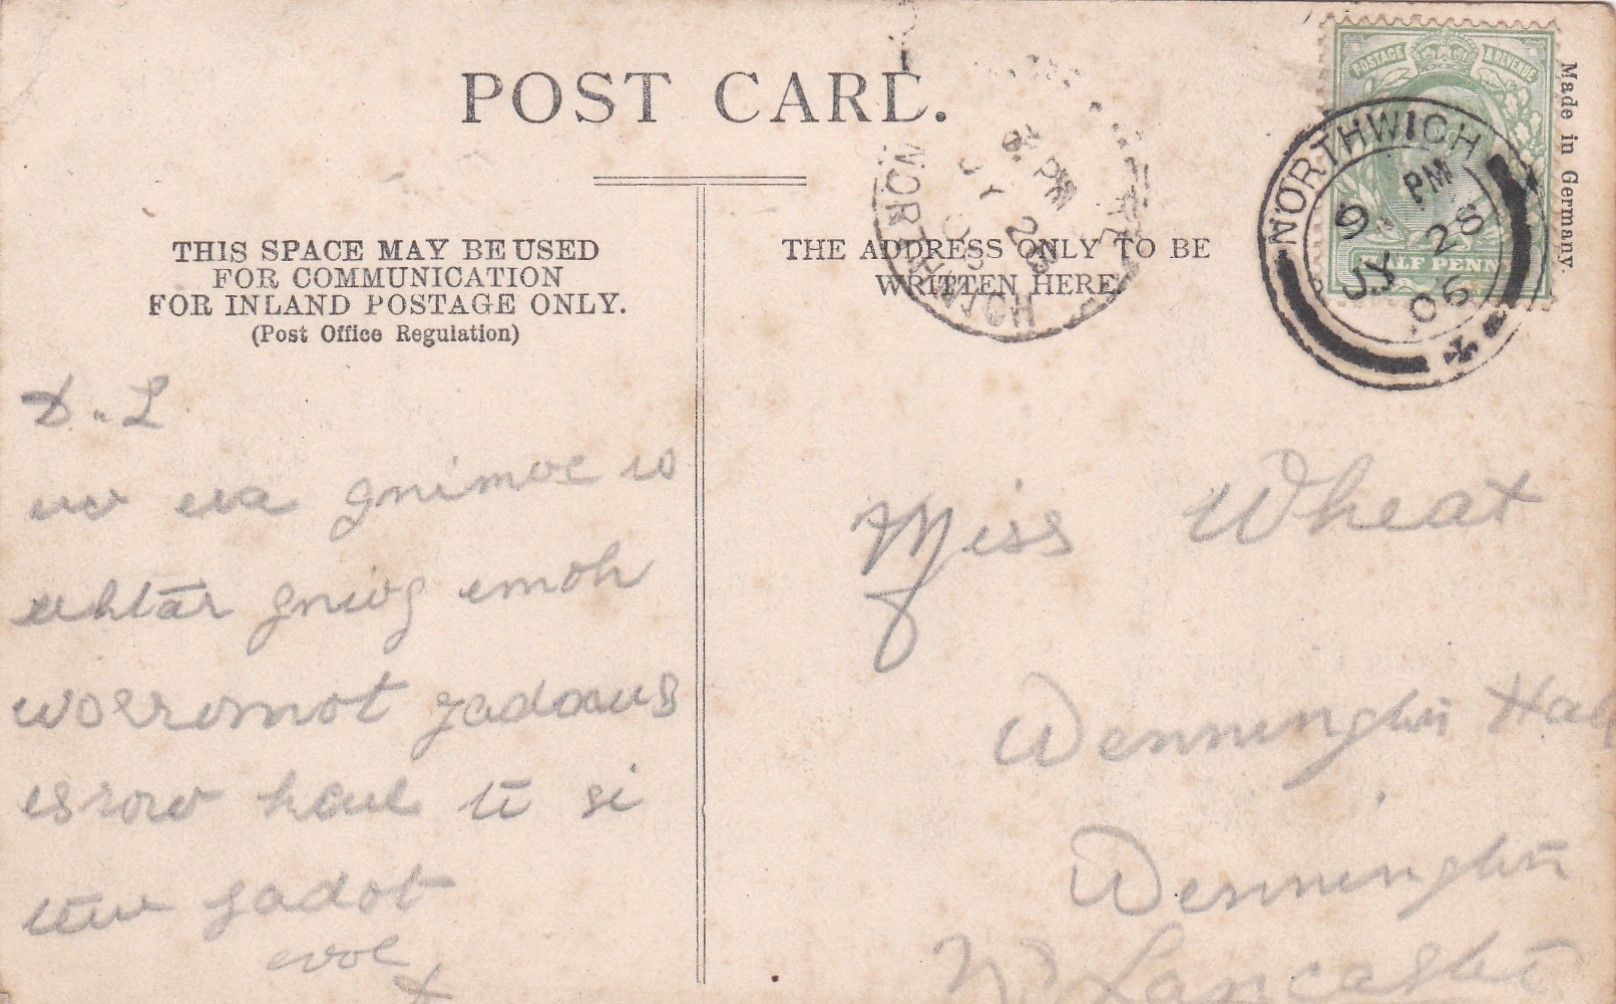 POST CARD.
Made in Germany.
POSTAGE & REVENUE
HALF PENNY
NORTHWICH
9 PM
JY 28
06
PM
JY 28
NORTHWICH
THIS SPACE MAY BE USED
FOR COMMUNICATION
FOR INLAND POSTAGE ONLY.
(Post Office Regulation)
THE ADDRESS ONLY TO BE
WRITTEN HERE.
D. L
ew era gnimoc
gniog emoh
worromot yadnus
esrow kcul ti si
tew yadot
evol
x
Miss Wheat
Wennington Hall
Wennington
Nr Lancaster